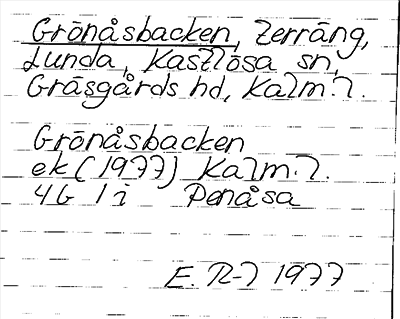 Grönåsbacken, terräng,
Lunda, Kastlösa sn,
Gräsgårds hd, Kalm. l.
Grönåsbacken
ek (1977) Kalm. l.
4G 1 i Penåsa
E. R-l 1977